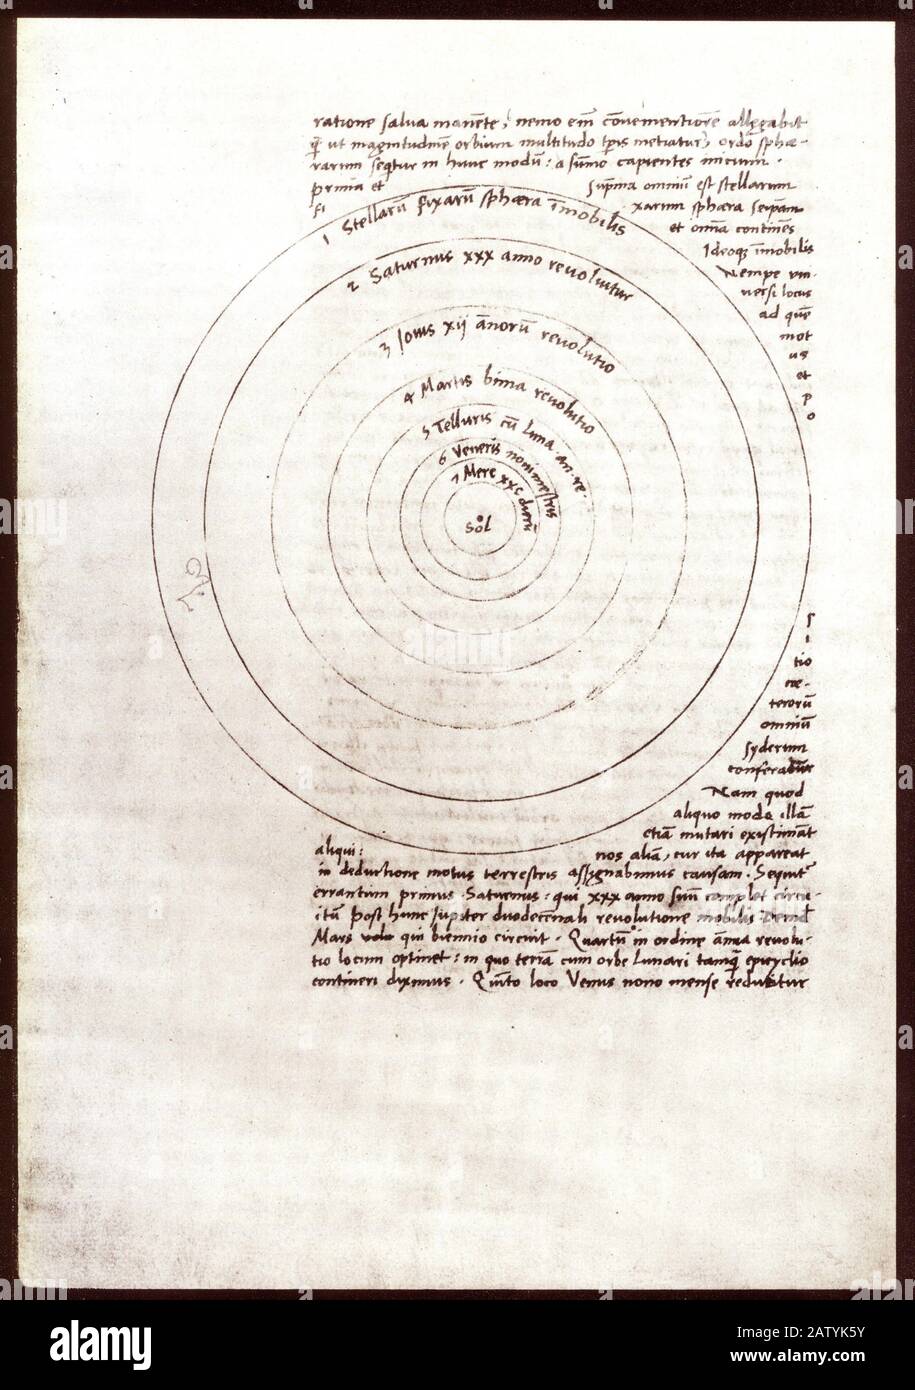 ratione salva manēte, nemo em̄ cōvenientiorē allegabit
q̄ ut magnitudinē orbium multitudo tp̄is metiatur, ordo sphæ-
rarum sequitur in hunc modū: a sūmo capientes inicium.
prima et suprema omniū est stellarum
fixarum sphæra seipsam
et omnia continens
Ideoq̨ īmobilis
Nempe uni-
versi locus
ad quē
mot
us
et
p
o
1 Stellarū fixarū sphæra īmobilis
2 Saturnus xxx anno revolvitur
3 Jovis xij annorū revolutio
4 Martis bima revolutio
5 Telluris cū Luna an. re.
6 Veneris nonimestris
7 Merc xxc dierū
Sol
s
i
tio
cæ-
terorū
omniū
syderum
conferatur
Nam quod
aliquo modo illā
etiā mutari existimāt
aliqui: nos aliā, cur ita appareat
in deductione motus terrestris assignabimus causam. Sequitur
errantium primus Saturnus: qui xxx anno suū complet circu-
itū post hunc Jupiter duodecennali revolutione mobilis Deinde
Mars qui biennio circuit. Quartū in ordine annua revolu-
tio locum optinet: in quo terrā cum orbe Lunari tamq̄ epicyclio
contineri diximus. Quinto loco Venus nono mense reducitur
alamy
Image ID: 2ATYK5Y
www.alamy.com